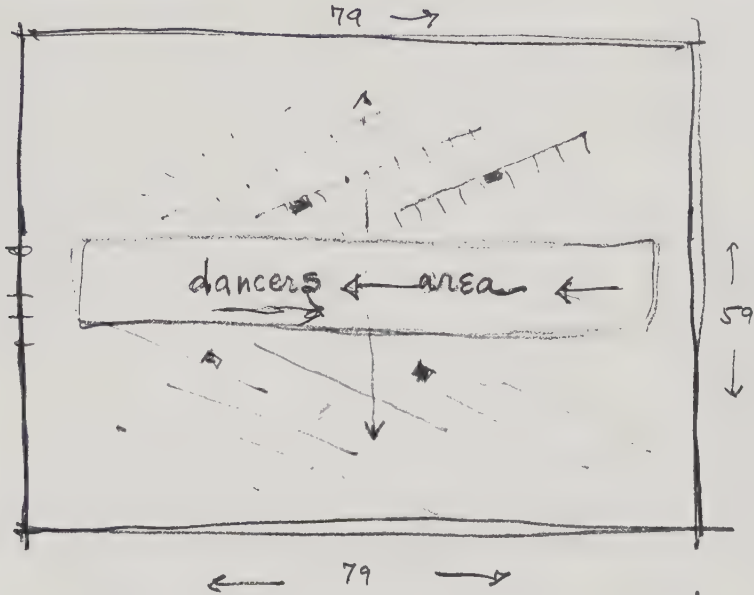 79 →
dancers ← area ←
→
↑
59
↓
← 79 →